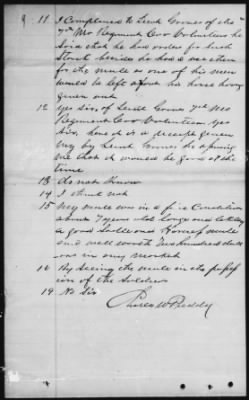 11 I Complained to Lieut Grones of the
7th Mo Regiment Cav Volunteers he
said that he had orders for such
Stock besides he had a use then
for the mule as one of his men
would be left afoot his horse having
given out
12 Yes Sir, of Lieut Grones 7th Mo
Regiment Cav Volunteers. Yes
Sir, here is a receipt given
me by Lieut Grones he assuring
me that it would be good at the
time
13 do not know
14 I think not
15 My mule was in a fine Condition
about 7 years old large and likely
a good Saddle and Harness mule
and well worth two hundred dolls
was in any market
16 By seeing the mule in the posses
sion of the Soldiers
19 No Sir
W Preddy